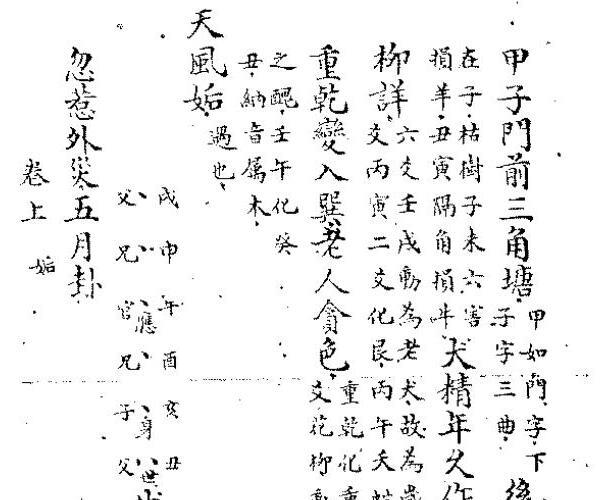 甲子門前三角塘
甲如門字下
子字三曲
後
在子枯樹子未六害
損羊丑寅隅角損牛
犬精年久作
柳詳
六爻壬戌動為老犬故為歲
爻丙寅二爻化艮丙午天
重乾變入巽老人貪色
重乾化重
爻花柳
之醜壬午化癸
丑納音屬木
天風姤
遇也
戌申午酉亥丑
應身世
父兄官兄子父
忽惹外災五月卦
卷上 姤